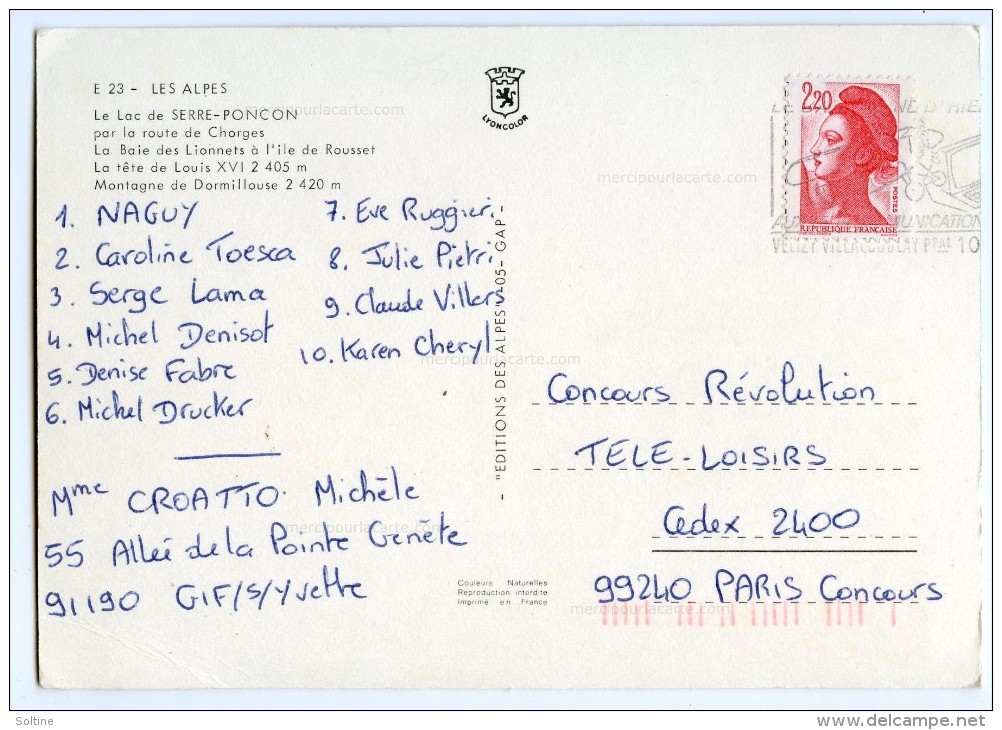 E 23 - LES ALPES
Le Lac de SERRE-PONCON
par la route de Chorges
La Baie des Lionnets à l'ile de Rousset
La tête de Louis XVI 2 405 m
Montagne de Dormillouse 2 420 m
1. NAGUY
2. Caroline Toesca
3. Serge Lama
4. Michel Denisot
5. Denise Fabre
6. Michel Drucker
7. Eve Ruggieri
8. Julie Pietri
9. Claude Villers
10. Karen Cheryl
Mme CROATTO Michèle
55 Allée de la Pointe Genête
91190 GIF/S/Yvette
LYONCOLOR
- "EDITIONS DES ALPES" - 05 - GAP -
Couleurs Naturelles
Reproduction interdite
Imprimé en France
2,20
POSTES
REPUBLIQUE FRANÇAISE
VELIZY VILLACOUBLAY Ppal 10
Concours Révolution
TELE-LOISIRS
Cedex 2400
99240 PARIS Concours
mercipourlacarte.com
mercipourlacarte.com
mercipourlacarte.com
mercipourlacarte.com
mercipourlacarte.com
Soltine
delcampe.net